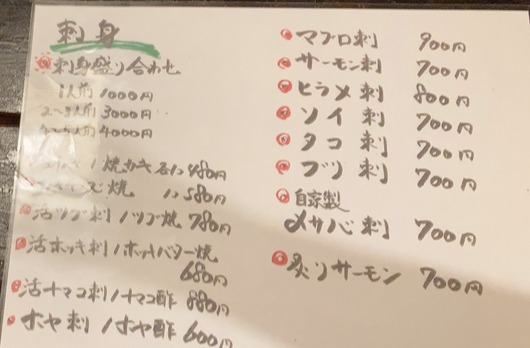 刺身
刺身盛り合わせ
1人前 1000円
2〜3人前 3000円
人前 4000円
焼カキ 各1ヶ 480円
焼 1ヶ 580円
活ツブ刺 / ツブ焼 780円
活ホッキ刺 / ホッキバター焼
680円
活ナマコ刺 / ナマコ酢 880円
ホヤ刺 / ホヤ酢 600円
マグロ刺 900円
サーモン刺 700円
ヒラメ刺 800円
ソイ刺 700円
タコ刺 700円
ブリ刺 700円
自家製
〆サバ刺 700円
炙りサーモン 700円